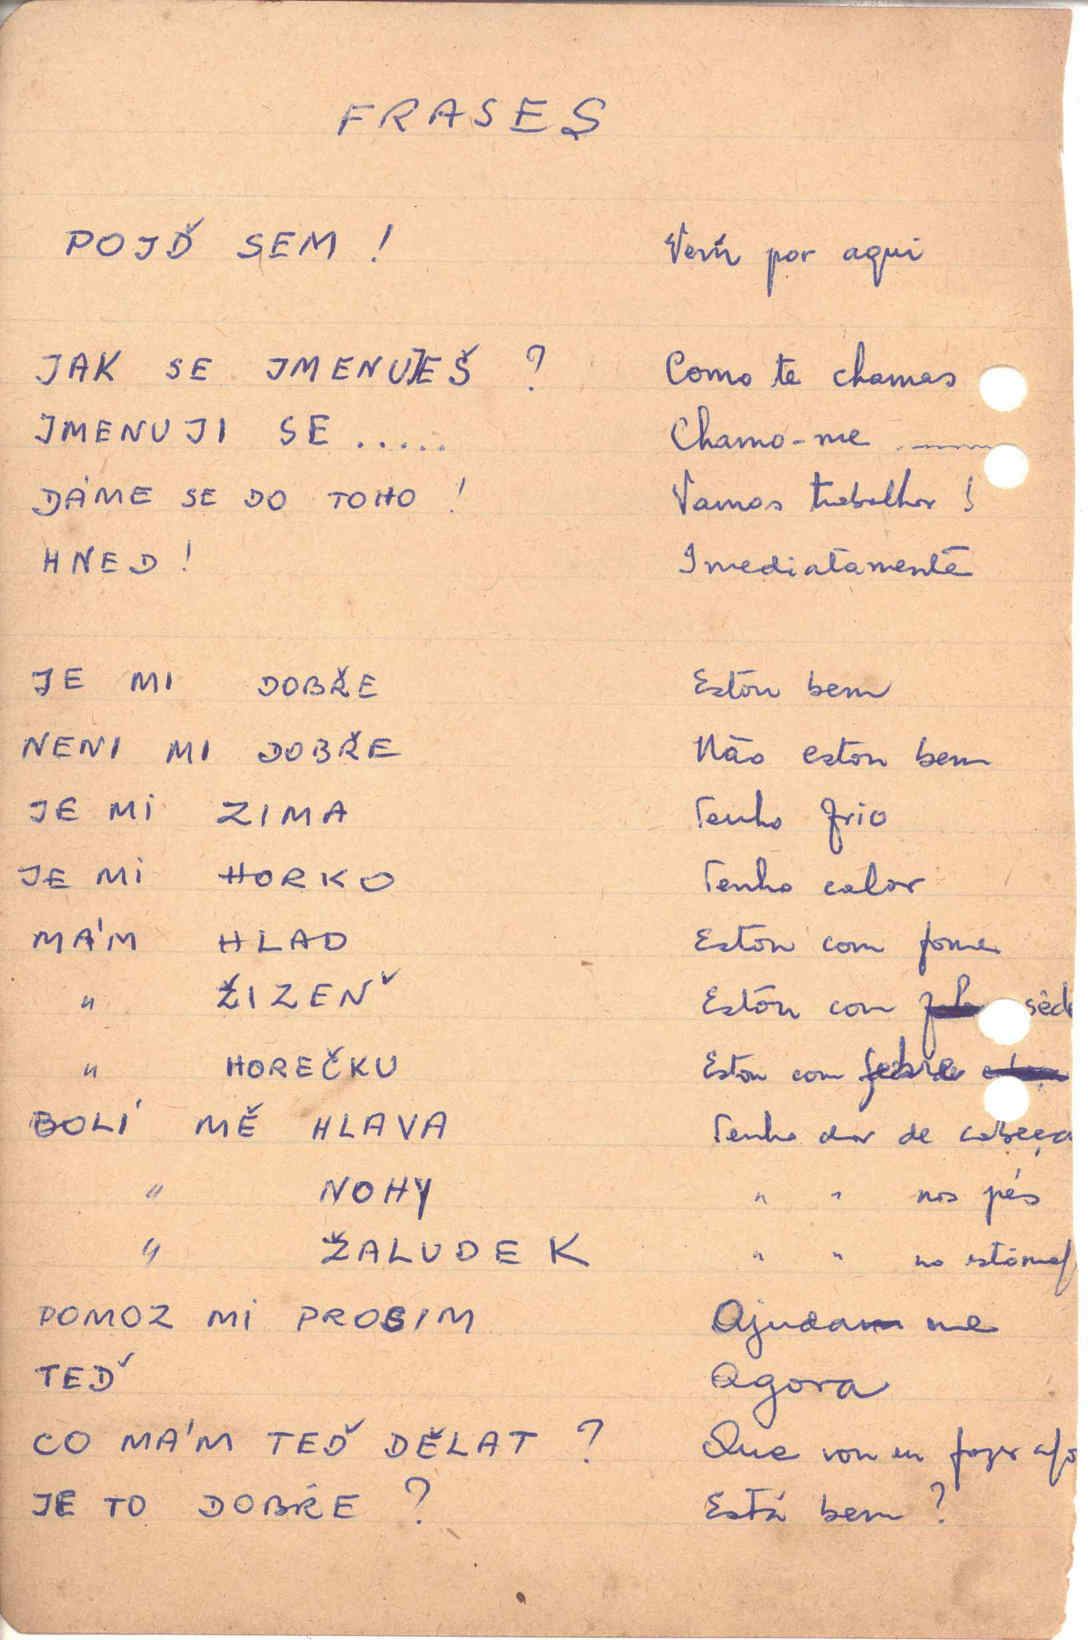 FRASES
POJĎ SEM ! Vem por aqui
JAK SE JMENUJEŠ ? Como te chamas
JMENUJI SE ..... Chamo-me
DÁME SE DO TOHO ! Vamos trabalhar !
HNED ! Imediatamente
JE MI DOBŘE Estou bem
NENI MI DOBŘE Não estou bem
JE MI ZIMA Tenho frio
JE MI HORKO Tenho calor
MÁM HLAD Estou com fome
" ŽIZEŇ Estou com sêde
" HOREČKU Estou com febre
BOLÍ MĚ HLAVA Tenho dor de cabeça
" NOHY " " nos pés
" ŽALUDEK " " no estômag
POMOZ MI PROSIM Ajuda me
TEĎ Agora
CO MÁM TEĎ DĚLAT ? Que vou eu fazer ago
JE TO DOBŘE ? Está bem ?